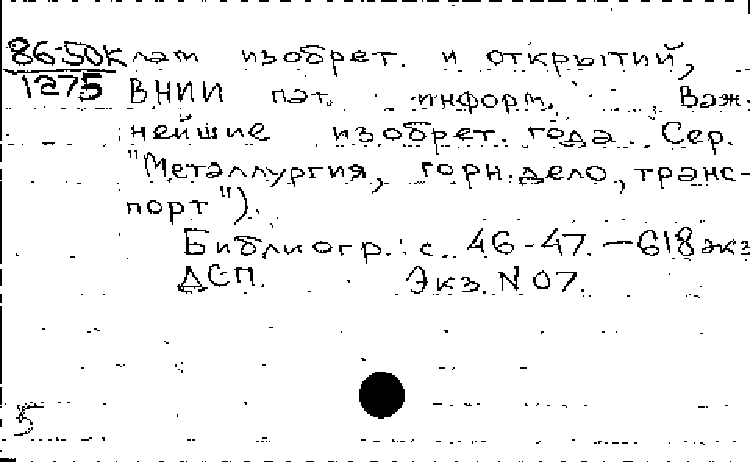 86-50к лам изобрет. и открытий,
1275 ВНИИ пат. информ. Важ-
нейшие изобрет. года. Сер.
"Металлургия, горн. дело, транс-
порт").
Библиогр.: с. 46-47. — 618 экз
ДСП. Экз. N 07.
5